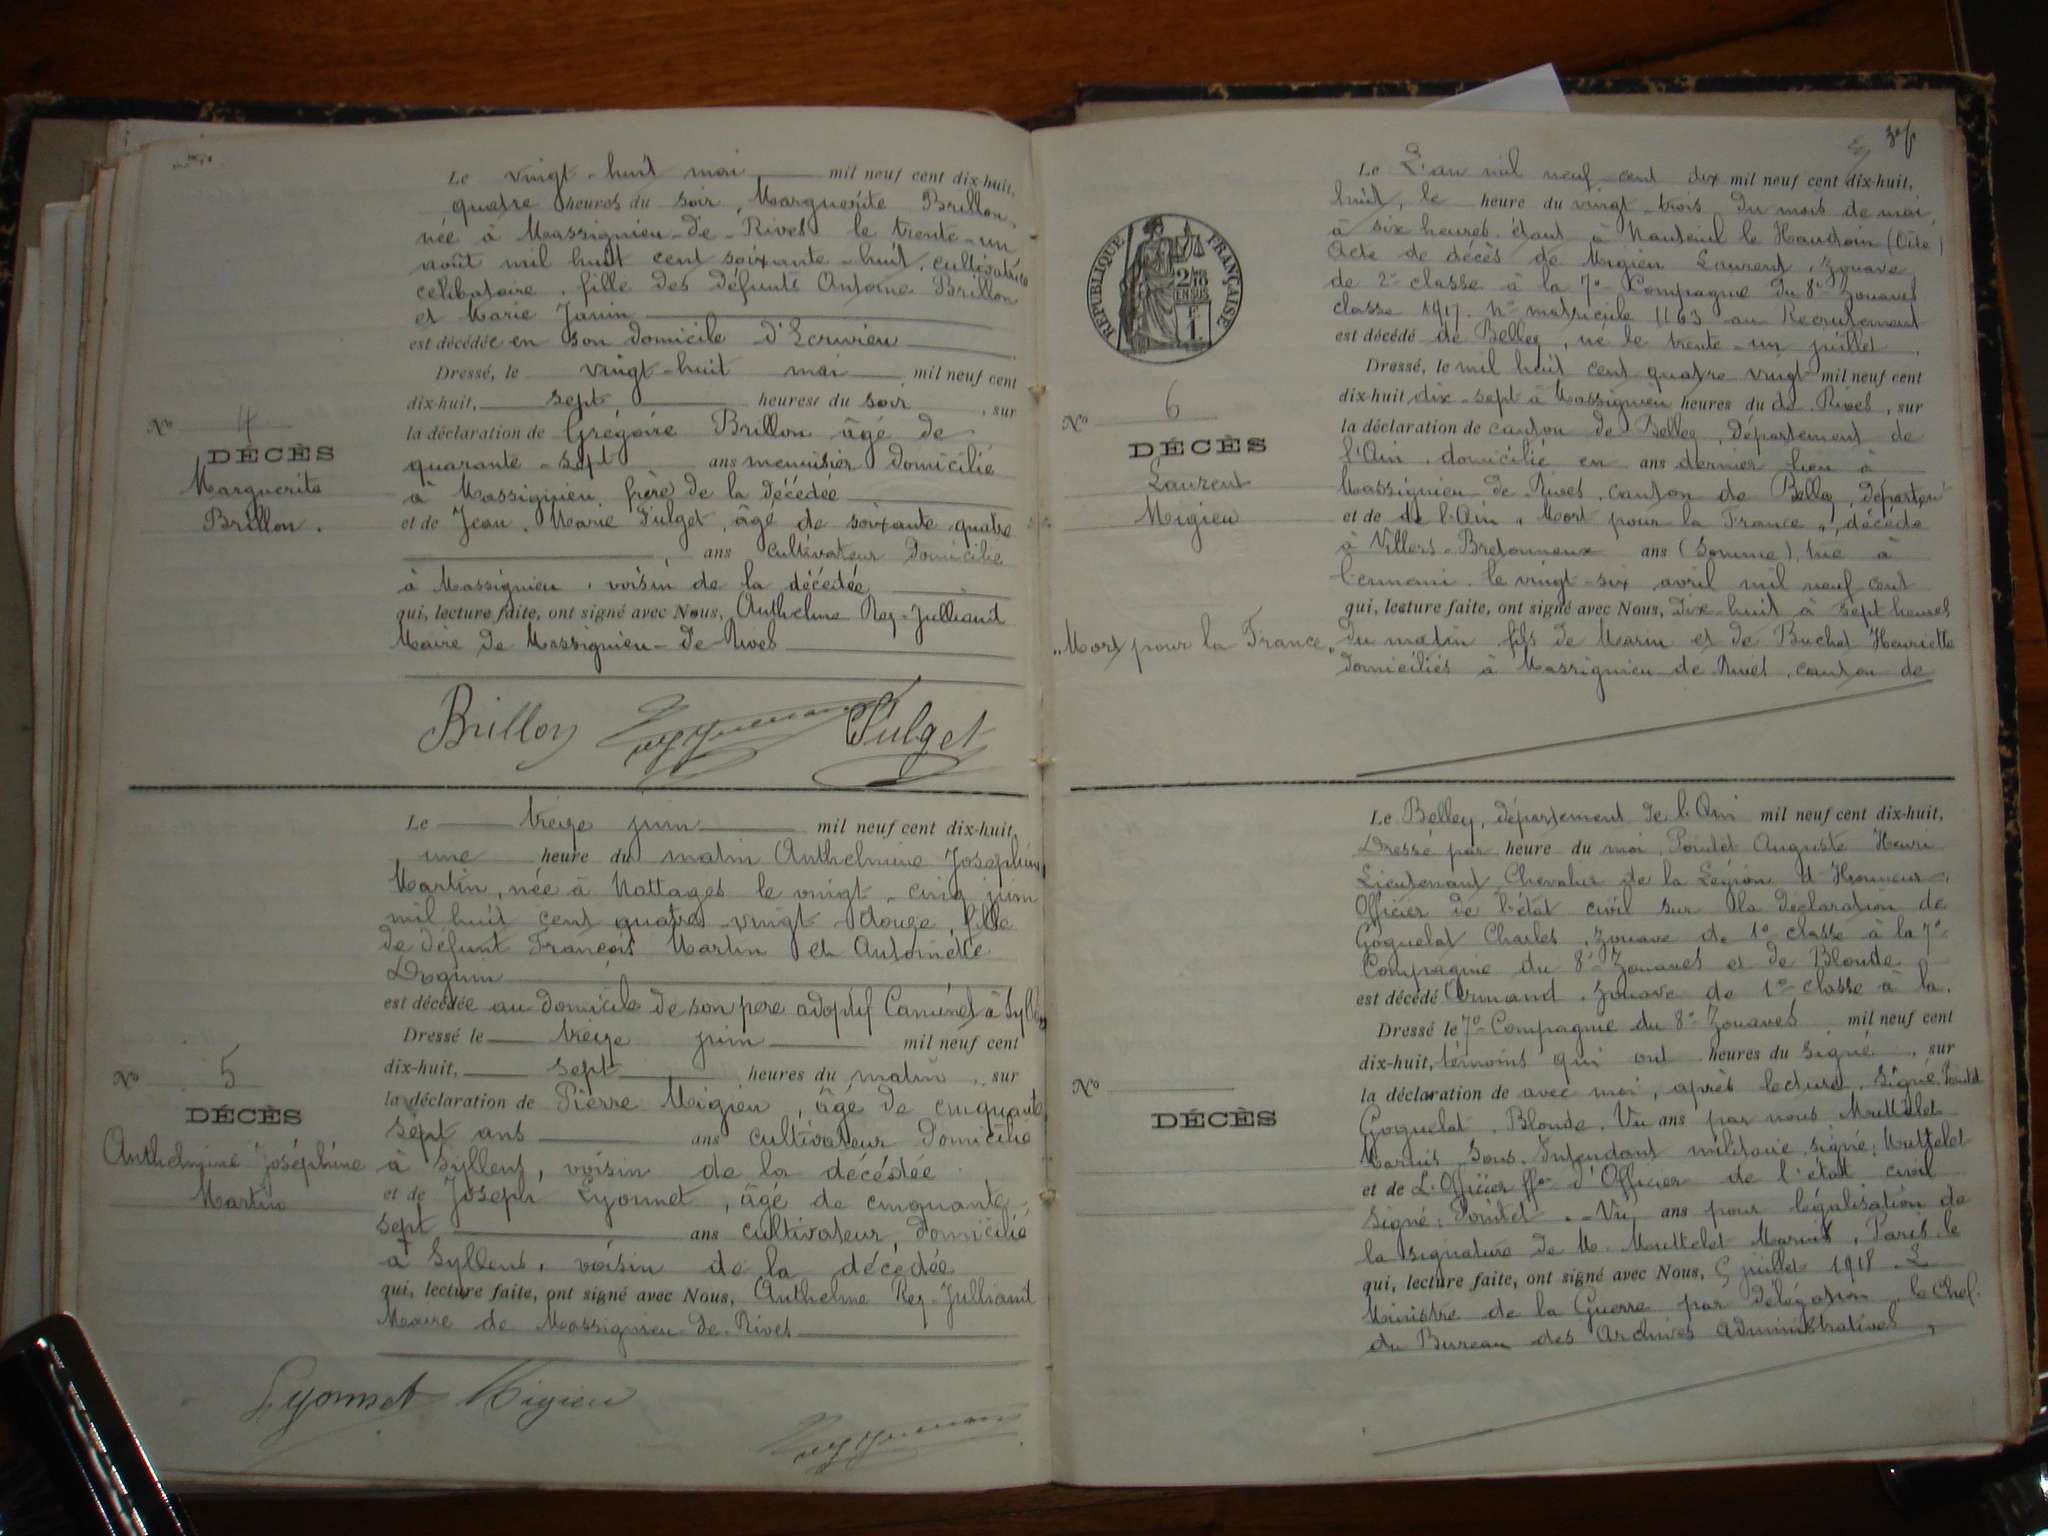 Le vingt-huit mai mil neuf cent dix-huit,
quatre heures du soir, Marguerite Brillon
née à Massignieu-de-Rives le trente-un
août mil huit cent soixante-huit, cultivatrice
célibataire, fille des défunts Antoine Brillon
et Marie Janin
est décédée en son domicile d'Ecrivieu
Dressé, le vingt-huit mai mil neuf cent
dix-huit, sept heures du soir, sur
la déclaration de Grégoire Brillon âgé de
quarante-sept ans menuisier domicilié
à Massignieu, frère de la décédée
et de Jean-Marie Pulget, âgé de soixante quatre
ans cultivateur domicilié
à Massignieu, voisin de la décédée
qui, lecture faite, ont signé avec Nous, Anthelme Rey-Julliand
Maire de Massignieu-de-Rives
No 4
DÉCÈS
Marguerite
Brillon.
Brillon Pulget
Le treize juin mil neuf cent dix-huit,
une heure du matin Anthelmine Joséphine
Martin, née à Nattages le vingt-cinq juin
mil huit cent quatre-vingt-douze, fille
de défunt François Martin et Antoinette
est décédée au domicile de son père adoptif
Dressé le treize juin mil neuf cent
dix-huit, sept heures du matin, sur
la déclaration de Pierre Migieu, âgé de cinquante
sept ans ans cultivateur domicilié
à Syllens, voisin de la décédée
et de Joseph Lyonnet, âgé de cinquante-
sept ans cultivateur, domicilié
à Syllens, voisin de la décédée
qui, lecture faite, ont signé avec Nous, Anthelme Rey-Julliand
Maire de Massignieu-de-Rives
No 5
DÉCÈS
Anthelmine Joséphine
Martin
Lyonnet Migieu
Le L'an mil neuf cent dix mil neuf cent dix-huit,
huit, le heure du vingt-trois du mois de mai,
à six heures étant à Nanteuil le Haudoin (Oise)
Acte de décès de Migieu Laurent, zouave
de 2e classe à la 7e Compagnie du 8e Zouaves
classe 1917. No matricule 1163 au Recrutement
est décédé de Belley, né le trente-un juillet
Dressé, le mil huit cent quatre vingt mil neuf cent
dix-huit, dix-sept à Massignieu heures du de Rives, sur
la déclaration de canton de Belley, département de
l'Ain, domicilié en ans dernier lieu à
Massignieu-de-Rives, canton de Belley, départent
et de de l'Ain "Mort pour la France", décédé
à Villers-Bretonneux ans (Somme), tué à
l'ennemi, le vingt-six avril mil neuf cent
qui, lecture faite, ont signé avec Nous, dix-huit à sept heures
du matin, fils de Marin et de Buchet Henriette
domiciliés à Massignieu-de-Rives, canton de
RÉPUBLIQUE FRANÇAISE
No 6
DÉCÈS
Laurent
Migieu
"Mort pour la France"
Le Belley, département de l'Ain mil neuf cent dix-huit,
Dressé par heure du moi, Pointet Auguste Henri
Lieutenant, Chevalier de la Légion d'Honneur,
Officier de l'état civil sur la déclaration de
Goguelat Charles, zouave de 1e classe à la 7e
Compagnie du 8e Zouaves et de Blonde
est décédé Armand, zouave de 1e classe à la
Dressé le 7e Compagnie du 8e Zouaves mil neuf cent
dix-huit, témoins qui ont heures du signé, sur
la déclaration de avec moi, après lecture. Signé Pointet
Goguelat. Blonde. Vu ans par nous Muttelet
Marius Sous-Intendant militaire signé: Muttelet
et de L'Officier ffon d'Officier de l'état civil
signé: Pointet. Vu ans pour légalisation de
la signature de M. Muttelet Marius, Paris le
qui, lecture faite, ont signé avec Nous, 5 juillet 1918. L
Ministre de la Guerre par délégation le Chef
du Bureau des Archives Administratives,
No
DÉCÈS